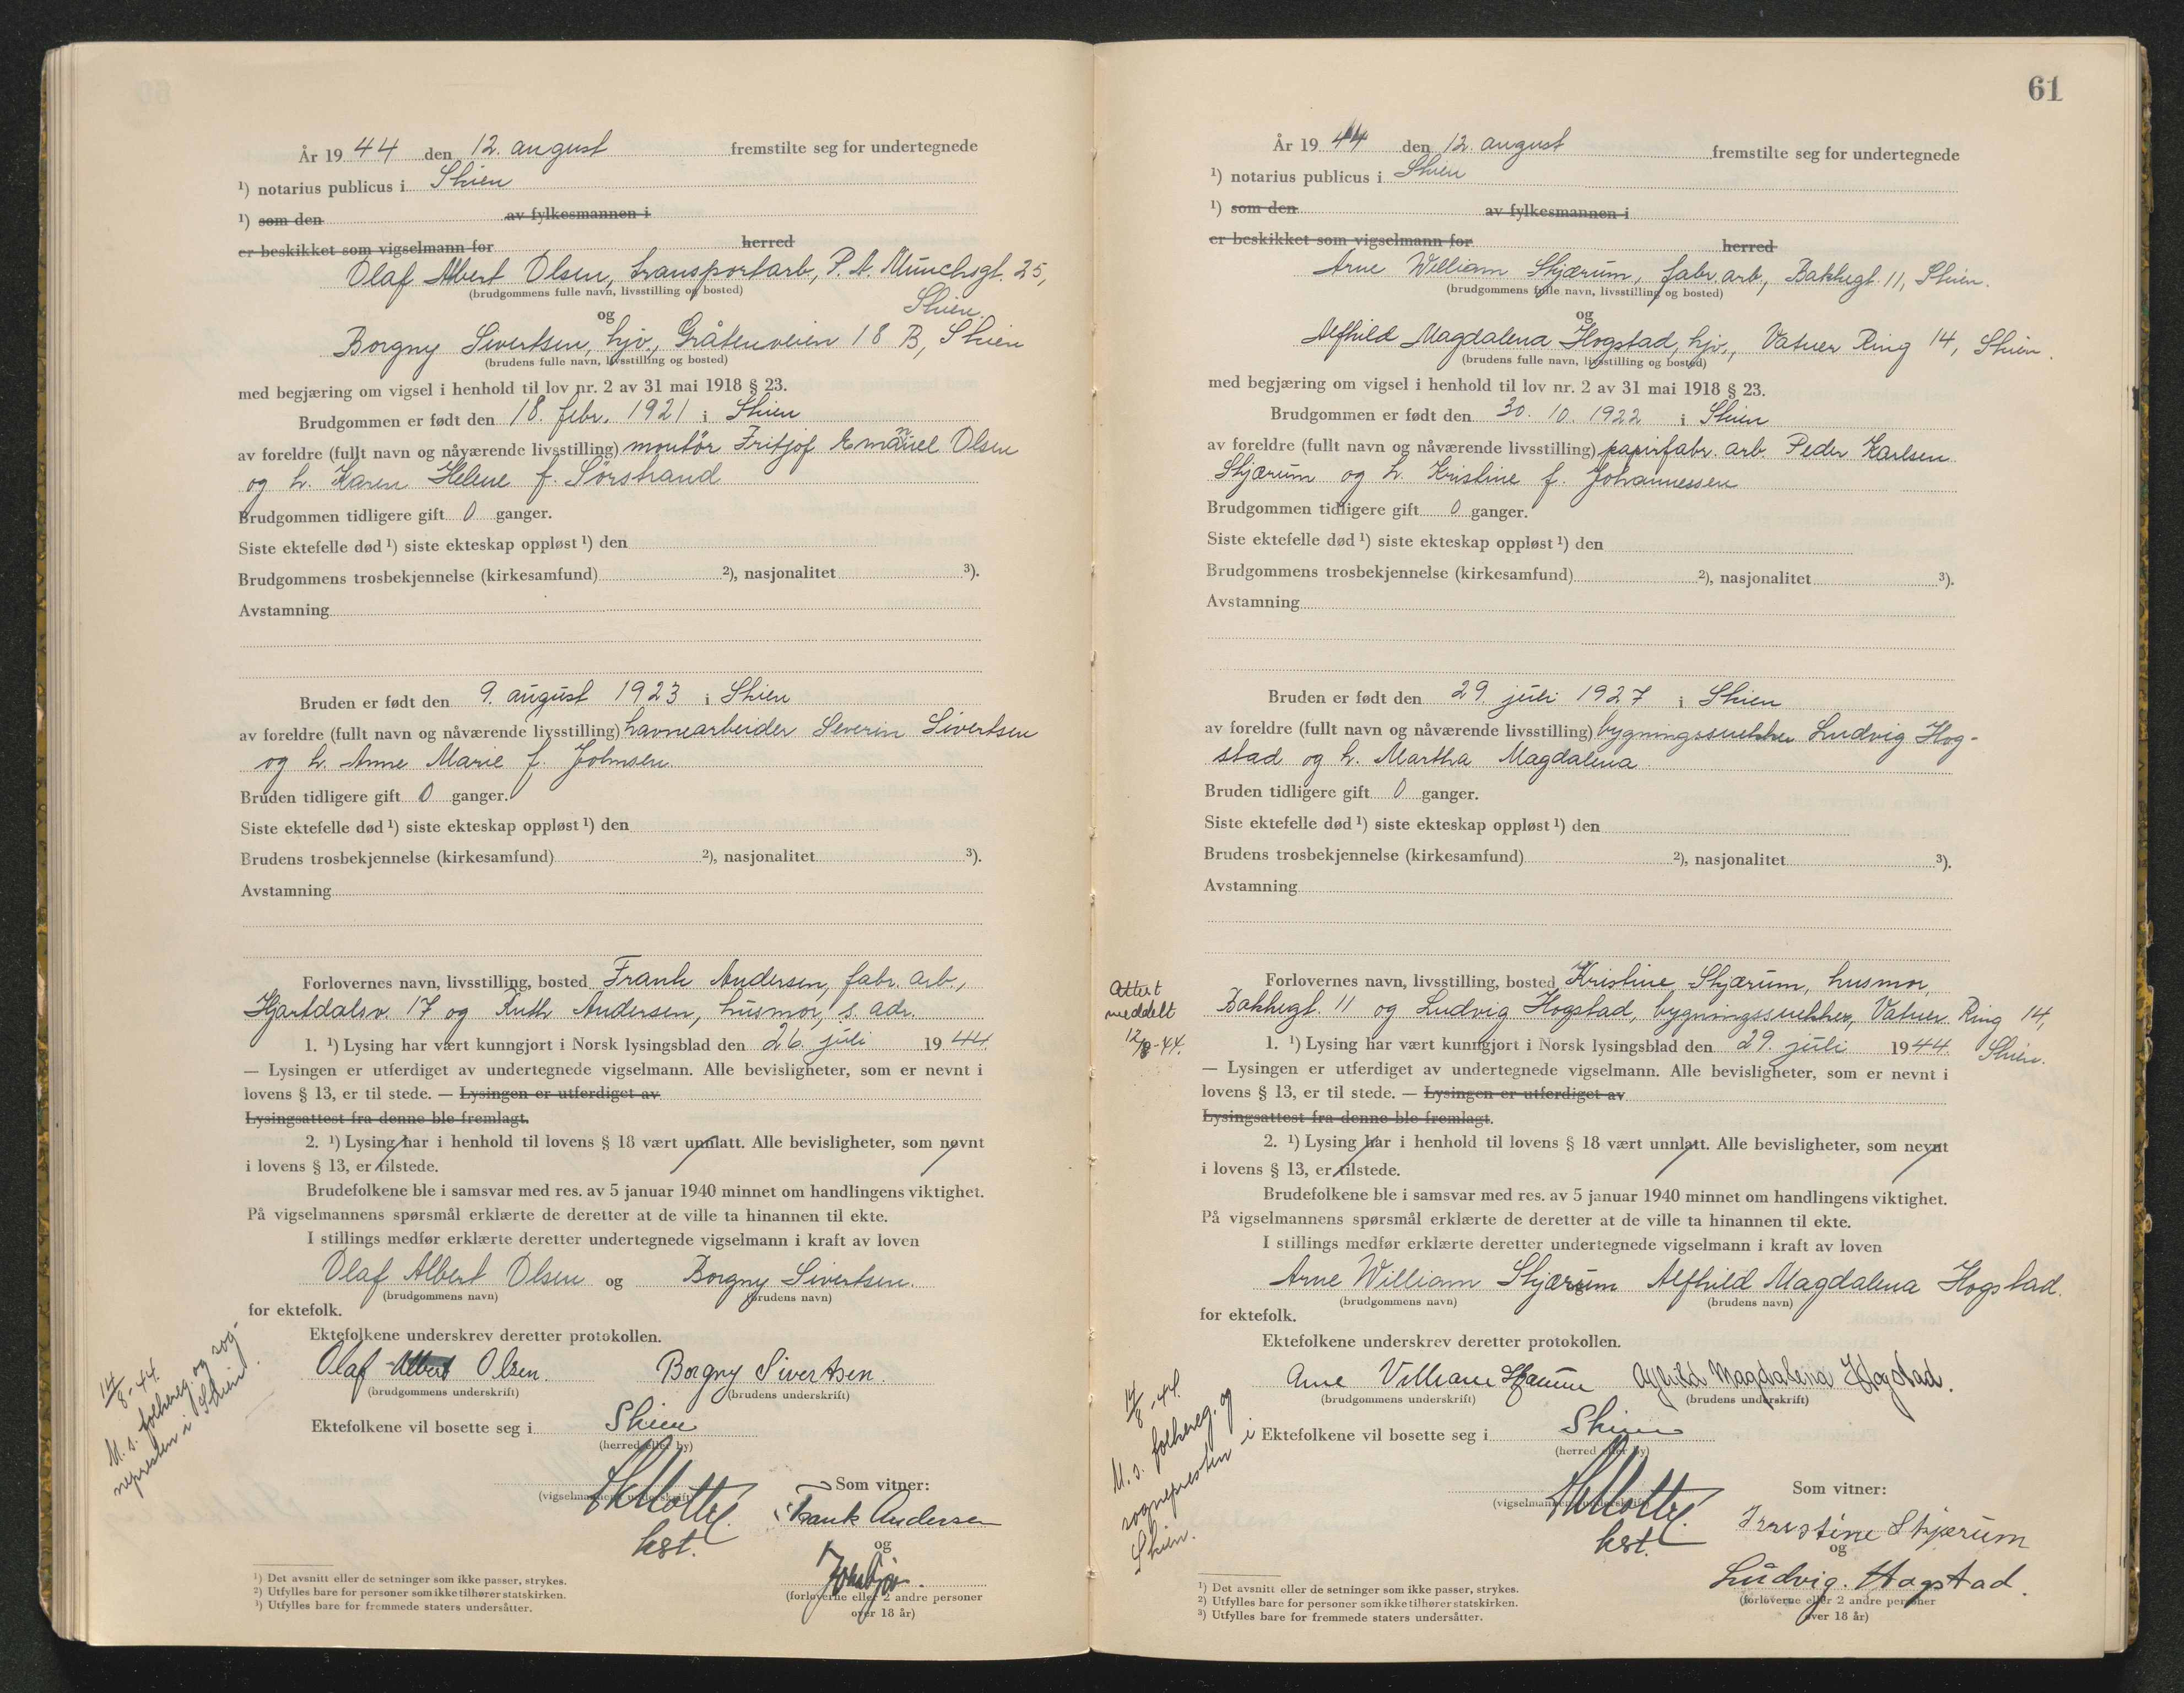 År 19 44 den 12. august fremstilte seg for undertegnede
¹) notarius publicus i Skien
¹) som den av fylkesmannen i
er beskikket som vigselmann for herred
Olaf Albert Olsen, transportarb, P. A. Munchsgt. 25,
(brudgommens fulle navn, livsstilling og bosted)
Skien.
og
Borgny Sivertsen, hjv., Gråtenveien 18 B, Skien
(brudens fulle navn, livsstilling og bosted)
med begjæring om vigsel i henhold til lov nr. 2 av 31 mai 1918 § 23.
Brudgommen er født den 18. febr. 1921 i Skien
av foreldre (fullt navn og nåværende livsstilling) montör Fritjof Emanuel Olsen
og h. Karen Helene f. Sørstrand
Brudgommen tidligere gift 0 ganger.
Siste ektefelle død ¹) siste ekteskap oppløst ¹) den
Brudgommens trosbekjennelse (kirkesamfund) ²), nasjonalitet ³).
Avstamning
Bruden er født den 9. august 1923 i Skien
av foreldre (fullt navn og nåværende livsstilling) havnearbeider Severin Sivertsen
og h. Anne Marie f. Johnsen.
Bruden tidligere gift 0 ganger.
Siste ektefelle død ¹) siste ekteskap oppløst ¹) den
Brudens trosbekjennelse (kirkesamfund) ²), nasjonalitet ³).
Avstamning
Forlovernes navn, livsstilling, bosted Frank Andersen, fabr. arb.,
Hjartdalsv. 17 og Ruth Andersen, husmor, s. adr.
1. ¹) Lysing har vært kunngjort i Norsk lysingsblad den 26. juli 19 44.
— Lysingen er utferdiget av undertegnede vigselmann. Alle bevisligheter, som er nevnt i
lovens § 13, er til stede. — Lysingen er utferdiget av
Lysingsattest fra denne ble fremlagt.
2. ¹) Lysing har i henhold til lovens § 18 vært unnlatt. Alle bevisligheter, som nevnt
i lovens § 13, er tilstede.
Brudefolkene ble i samsvar med res. av 5 januar 1940 minnet om handlingens viktighet.
På vigselmannens spørsmål erklærte de deretter at de ville ta hinannen til ekte.
I stillings medfør erklærte deretter undertegnede vigselmann i kraft av loven
Olaf Albert Olsen og Borgny Sivertsen.
(brudgommens navn) (brudens navn)
for ektefolk.
Ektefolkene underskrev deretter protokollen.
Olaf Albert Olsen. Borgny Sivertsen.
(brudgommens underskrift) (brudens underskrift)
Ektefolkene vil bosette seg i Skien
(herred eller by)
14/8-44.
M. s. folkereg. og sog-
nepresten i Skien.
Som vitner:
(vigselmannens underskrift)
Frank Andersen
kst.
og
(forloverne eller 2 andre personer
over 18 år)
¹) Det avsnitt eller de setninger som ikke passer, strykes.
²) Utfylles bare for personer som ikke tilhører statskirken.
³) Utfylles bare for fremmede staters undersåtter.
61
År 19 44 den 12. august fremstilte seg for undertegnede
¹) notarius publicus i Skien
¹) som den av fylkesmannen i
er beskikket som vigselmann for herred
Arne William Skjærum, fabr. arb., Bakkegt. 11, Skien.
(brudgommens fulle navn, livsstilling og bosted)
og
Alfhild Magdalena Hogstad, hjv., Vatner Ring 14, Skien.
(brudens fulle navn, livsstilling og bosted)
med begjæring om vigsel i henhold til lov nr. 2 av 31 mai 1918 § 23.
Brudgommen er født den 30. 10. 1922 i Skien
av foreldre (fullt navn og nåværende livsstilling) papirfabr. arb. Peder Karlsen
Skjærum og h. Kristine f. Johannessen
Brudgommen tidligere gift 0 ganger.
Siste ektefelle død ¹) siste ekteskap oppløst ¹) den
Brudgommens trosbekjennelse (kirkesamfund) ²), nasjonalitet ³).
Avstamning
Bruden er født den 29. juli 1927 i Skien
av foreldre (fullt navn og nåværende livsstilling) bygningssnekker Ludvig Hog-
stad og h. Martha Magdalena
Bruden tidligere gift 0 ganger.
Siste ektefelle død ¹) siste ekteskap oppløst ¹) den
Brudens trosbekjennelse (kirkesamfund) ²), nasjonalitet ³).
Avstamning
Attest
meddelt
12/8-44.
Forlovernes navn, livsstilling, bosted Kristine Skjærum, husmor,
Bakkegt. 11 og Ludvig Hogstad, bygningssnekker, Vatner Ring 14,
Skien.
1. ¹) Lysing har vært kunngjort i Norsk lysingsblad den 29. juli 19 44.
— Lysingen er utferdiget av undertegnede vigselmann. Alle bevisligheter, som er nevnt i
lovens § 13, er til stede. — Lysingen er utferdiget av
Lysingsattest fra denne ble fremlagt.
2. ¹) Lysing har i henhold til lovens § 18 vært unnlatt. Alle bevisligheter, som nevnt
i lovens § 13, er tilstede.
Brudefolkene ble i samsvar med res. av 5 januar 1940 minnet om handlingens viktighet.
På vigselmannens spørsmål erklærte de deretter at de ville ta hinannen til ekte.
I stillings medfør erklærte deretter undertegnede vigselmann i kraft av loven
Arne William Skjærum Alfhild Magdalena Hogstad.
(brudgommens navn) (brudens navn)
for ektefolk.
Ektefolkene underskrev deretter protokollen.
Arne William Skjærum Alfhild Magdalena Hogstad.
(brudgommens underskrift) (brudens underskrift)
Ektefolkene vil bosette seg i Skien
(herred eller by)
14/8-44.
M. s. folkereg. og
sognepresten i
Skien.
Som vitner:
(vigselmannens underskrift)
Kristine Skjærum
kst.
og
Ludvig. Hogstad.
(forloverne eller 2 andre personer
over 18 år)
¹) Det avsnitt eller de setninger som ikke passer, strykes.
²) Utfylles bare for personer som ikke tilhører statskirken.
³) Utfylles bare for fremmede staters undersåtter.